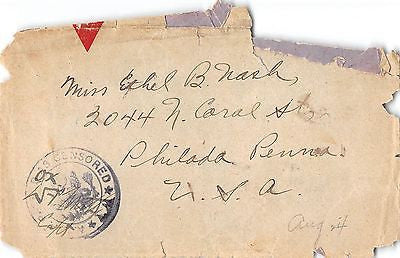 Miss Ethel B. Nash,
2044 N. Coral St.,
Philada Penna.
U. S. A.
Aug 24
CENSORED